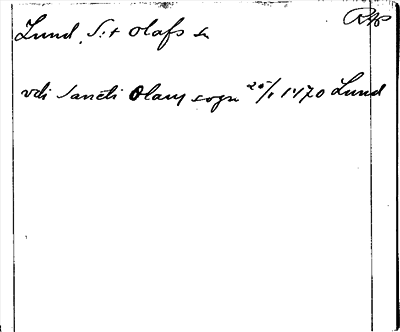 Lund, S:t Olafs sn
vdi Sancti Olaus sogn 25/1 1470 Lund